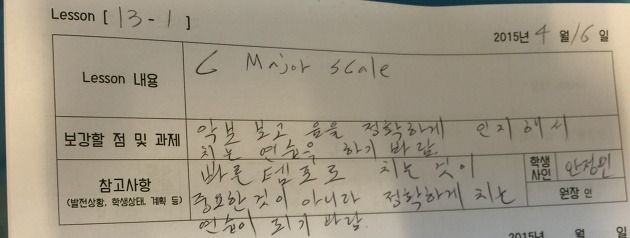 Lesson [ 13-1 ]
2015년 4 월 16 일
Lesson 내용
C Major scale
보강할 점 및 과제
악보 보고 음을 정확하게 인지해서
치는 연습을 하기 바람.
참고사항
(발전상황, 학생상태, 계획 등)
빠른 템포로 치는 것이
중요한 것이 아니라 정확하게 치는
연습이 되기 바람.
학생
사인
안정민
원장 인
2015년 월 일